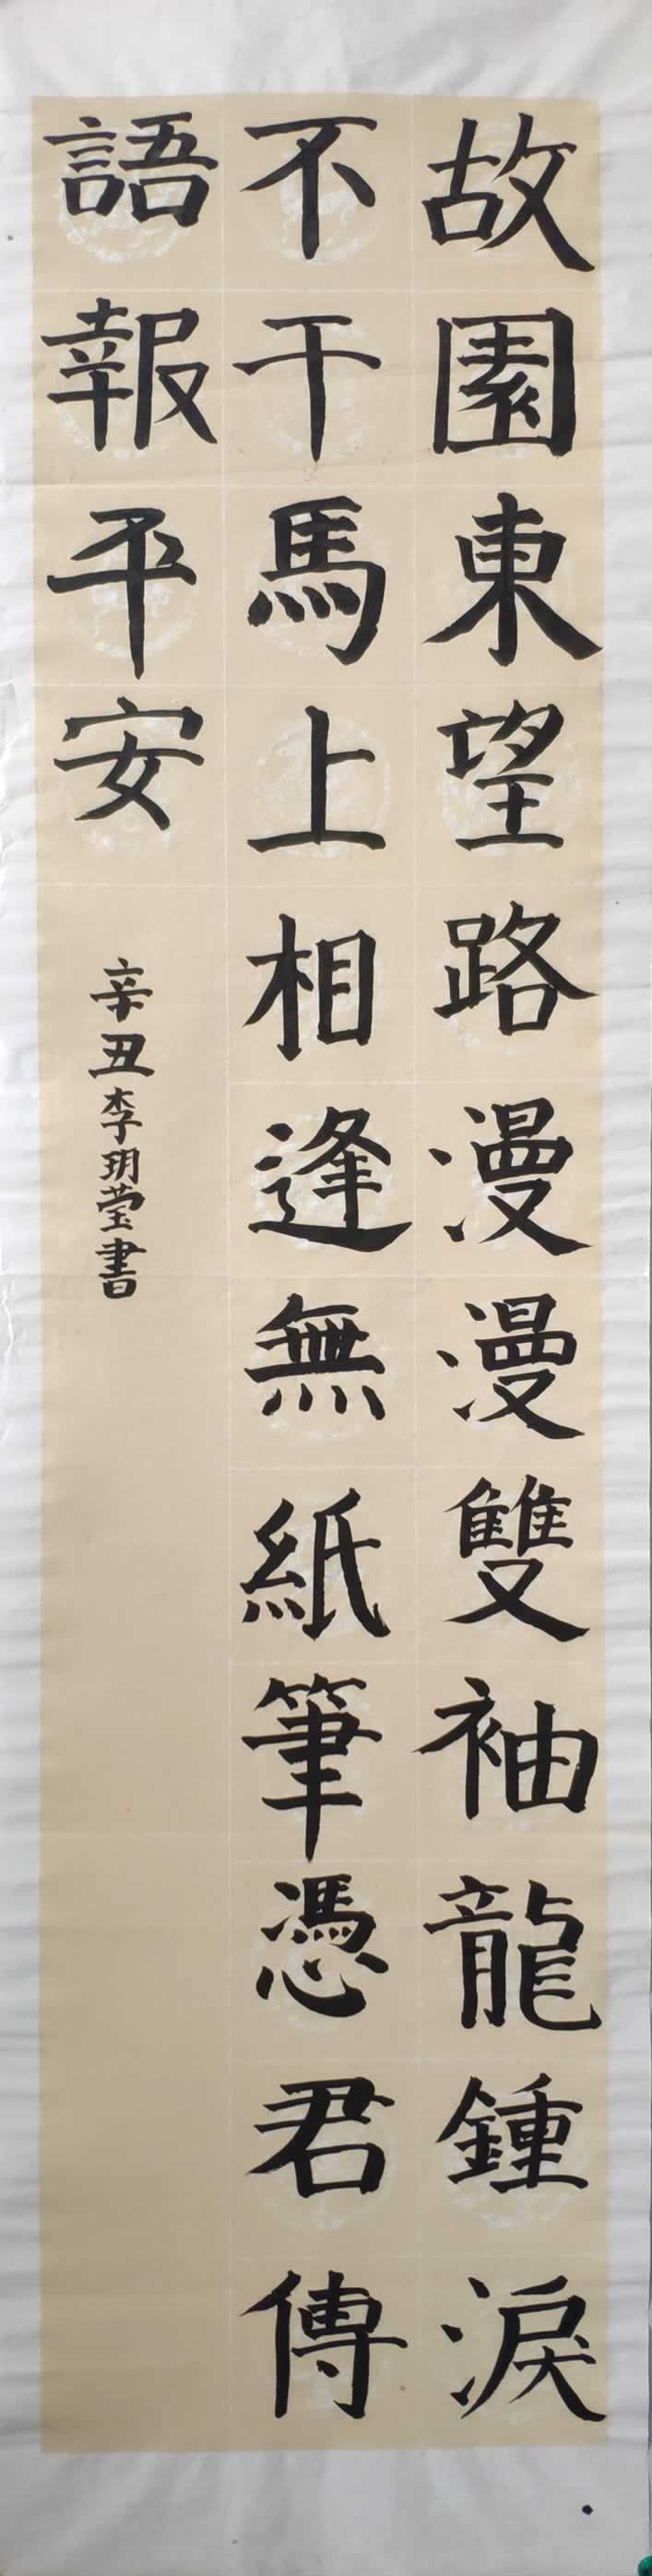 故園東望路漫漫雙袖龍鍾淚
不干馬上相逢無紙筆憑君傳
語報平安
辛丑李玥莹書